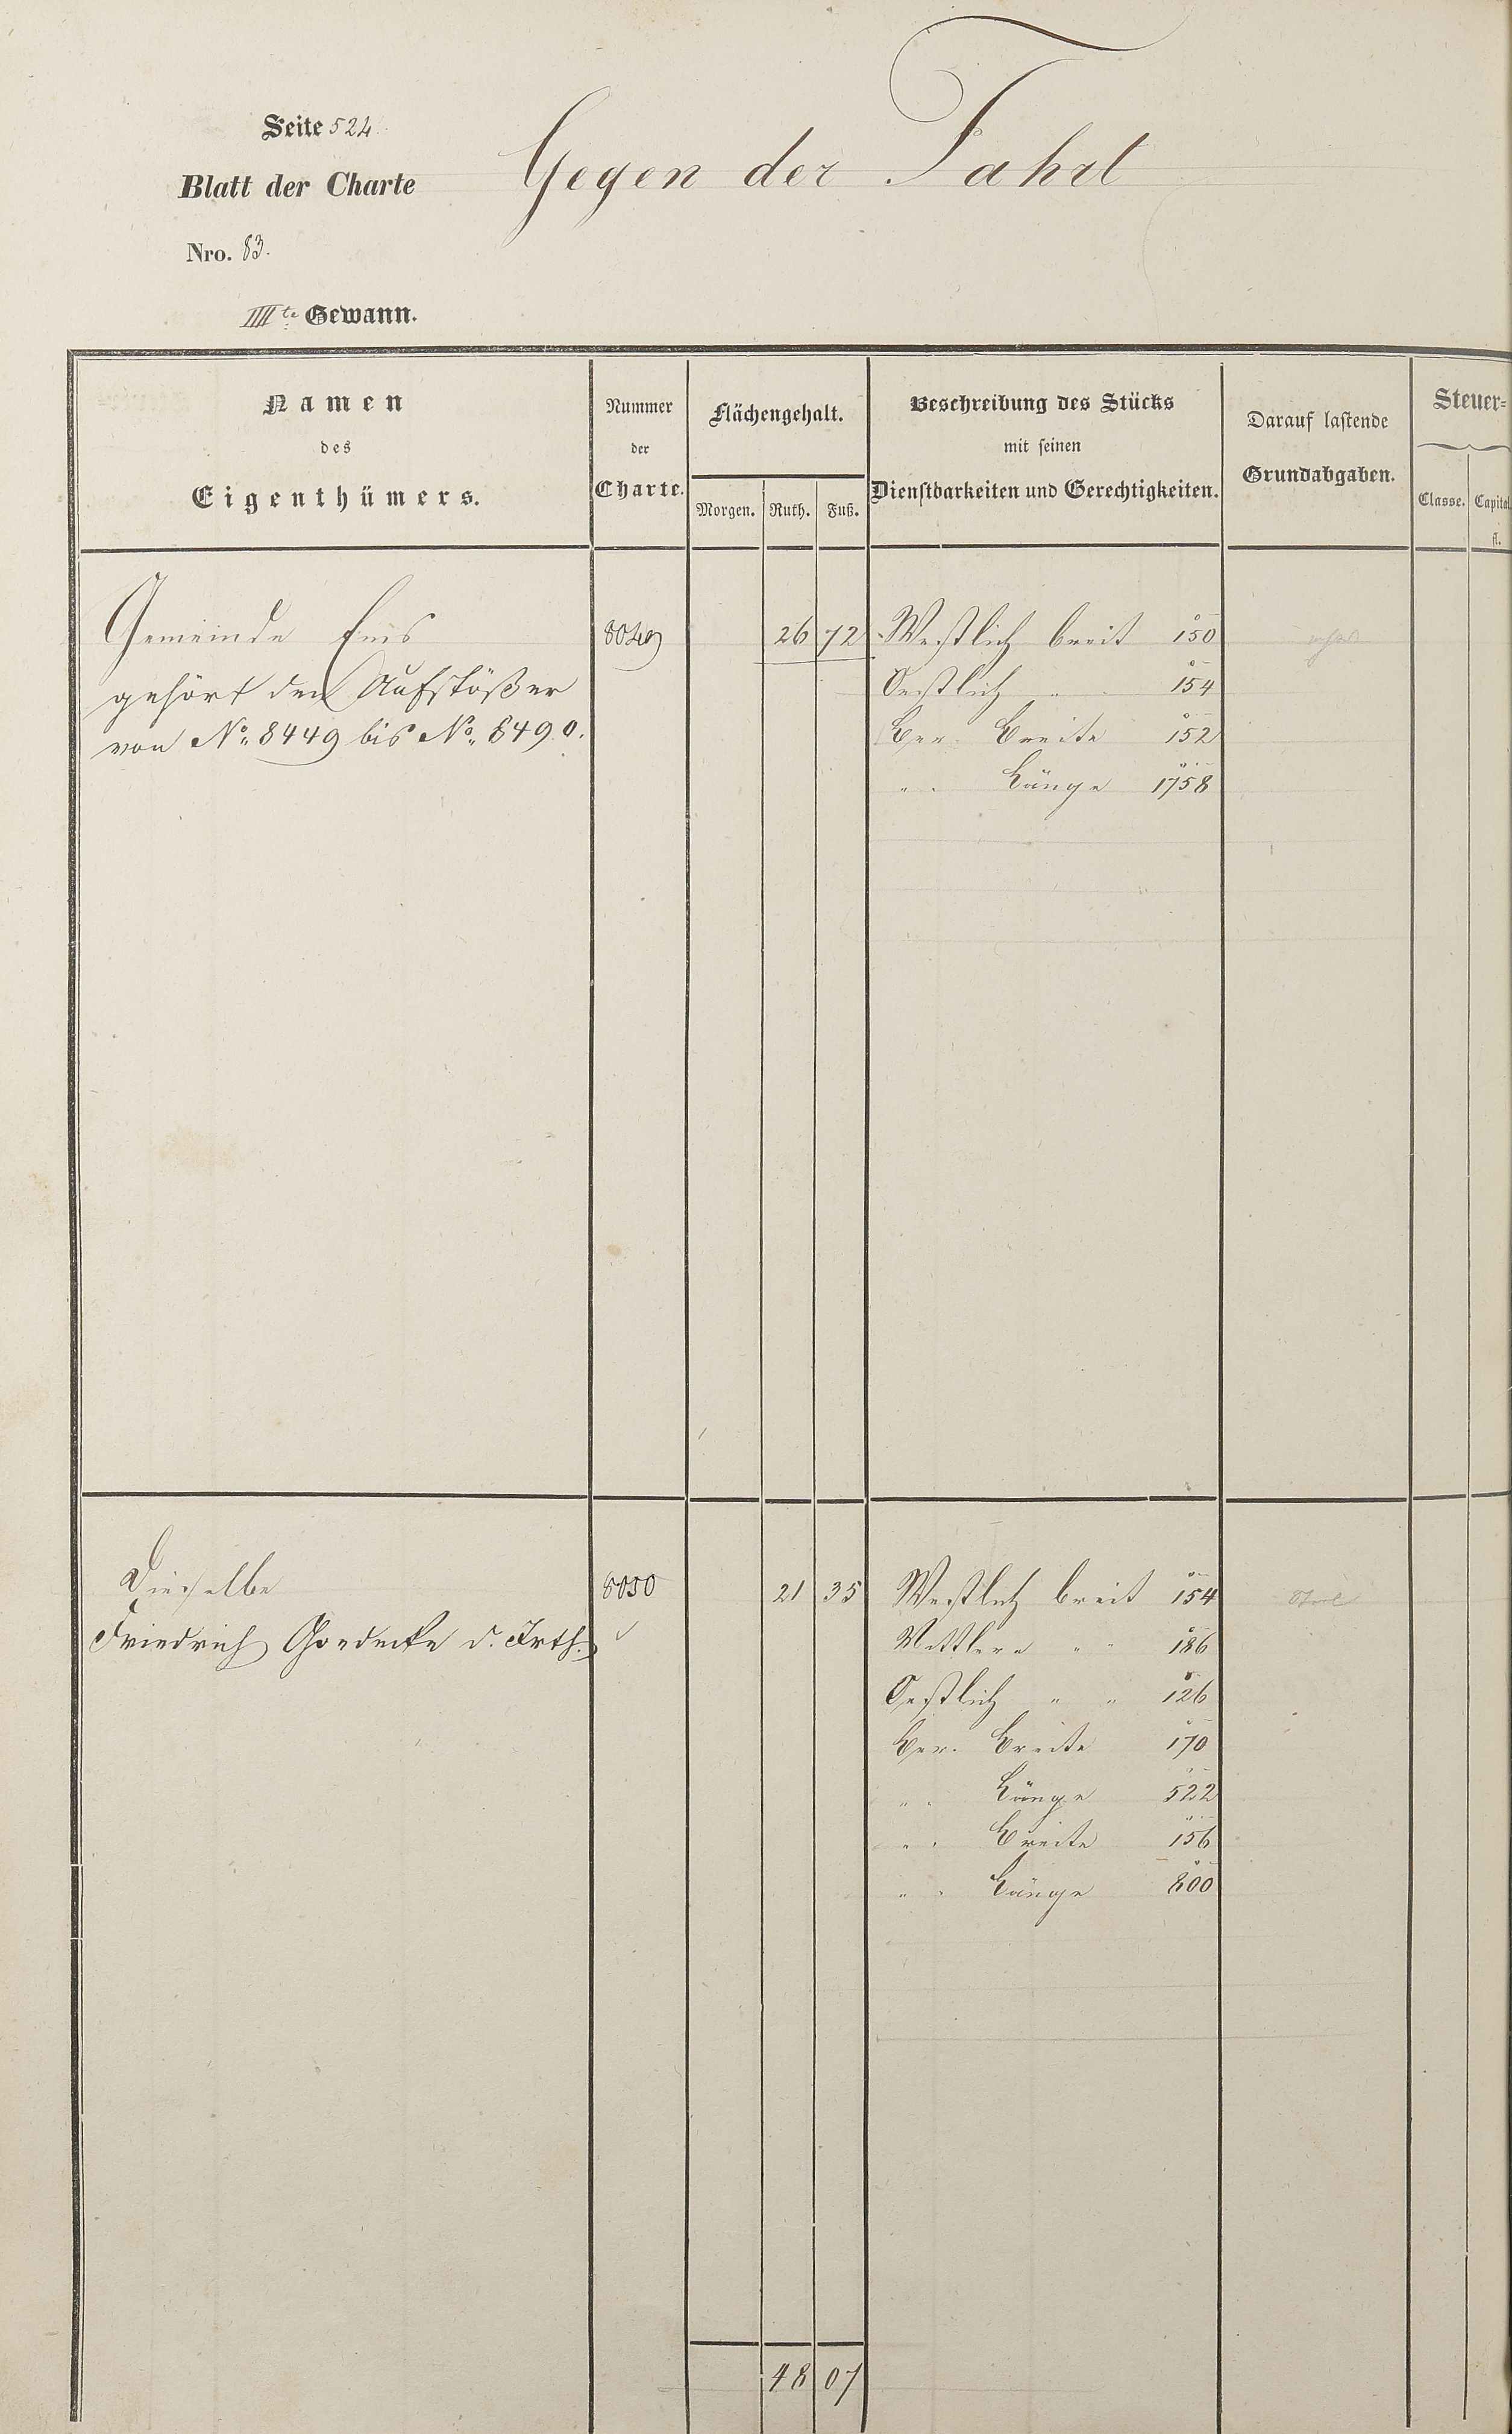 Seite 524
Gegen der Fahrt
Blatt der Charte
Nro. 83.
IIIIte Gewann.
Namen des Eigenthümers.
Nummer der Charte.
Flächengehalt.
Morgen. Ruth. Fuß.
Beschreibung des Stücks mit seinen Dienstbarkeiten und Gerechtigkeiten.
Darauf lastende Grundabgaben.
Steuer=
Classe. Capital fl.
Gemeinde Ems 8049 26 72 Westlich breit 150
gehört den Aufstößer Oestlich " " 154
von No. 8449 bis No. 8490. Ber. Breite 152
" " Länge 1758
Dieselbe 8050 21 35 Westlich breit 154
Friedrich Goedecke d. Irth. Mittlere " " 186
Oestlich " " 126
Ber. Breite 170
" " Länge 522
" " Breite 156
" " Länge 800
48 07